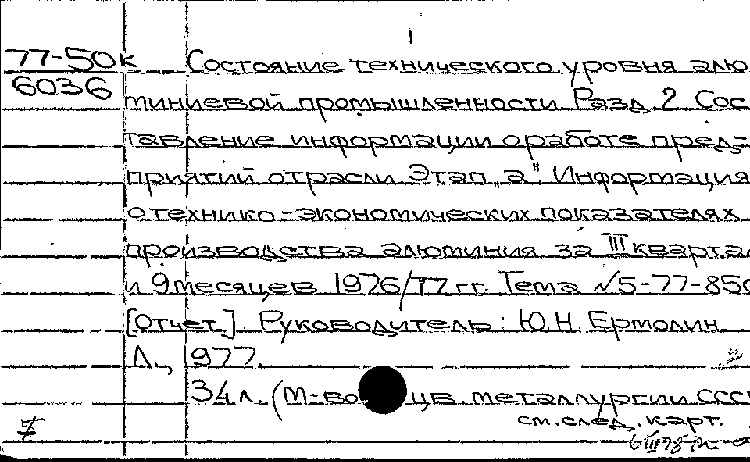 1
77-50к Состояние технического уровня алю
6036 миниевой промышленности Разд. 2 Сос
тавление информации о работе пред-
приятий отрасли Этап „а". Информация
о технико-экономических показателях
производства алюминия за III квартал
и 9 месяцев 1976/77 гг. Тема №5-77-850
[Отчет.] Руководитель: Ю.Н. Ермолин
Л., 1977.
34 л. (М-во цв. металлургии ССС
см. след. карт.
7